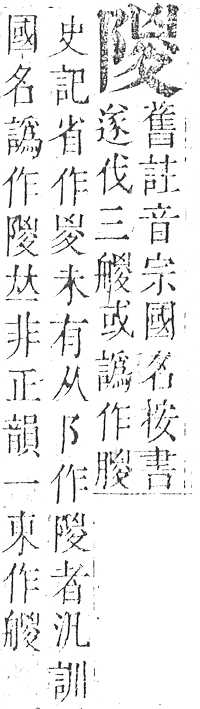 陖
舊註音宗國名按書
遂伐三艐或譌作朡
史記省作㚇未有从阝作陖者汎訓
國名譌作陖𠀤非正韻一東作艐